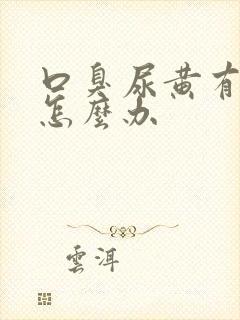 口臭尿黄有
怎麼办
雲洱